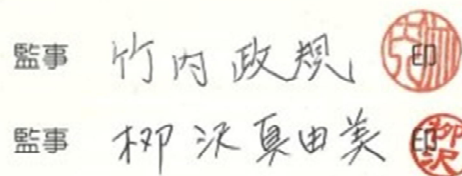 監事 竹内政規 印
監事 柳沢真由美 印 柳沢